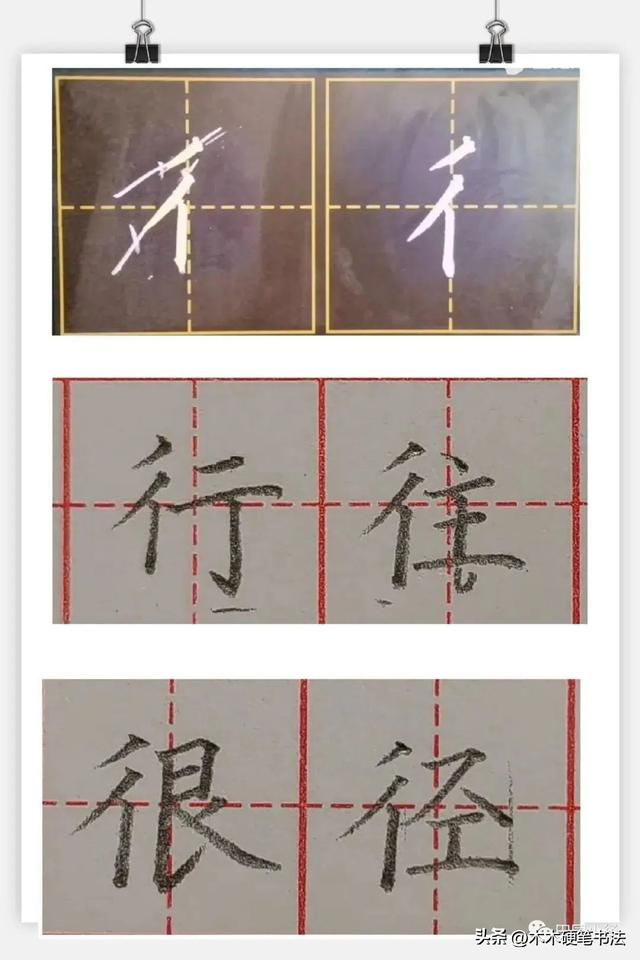 彳 彳
行 往
很 径
头条 @木木硬笔书法